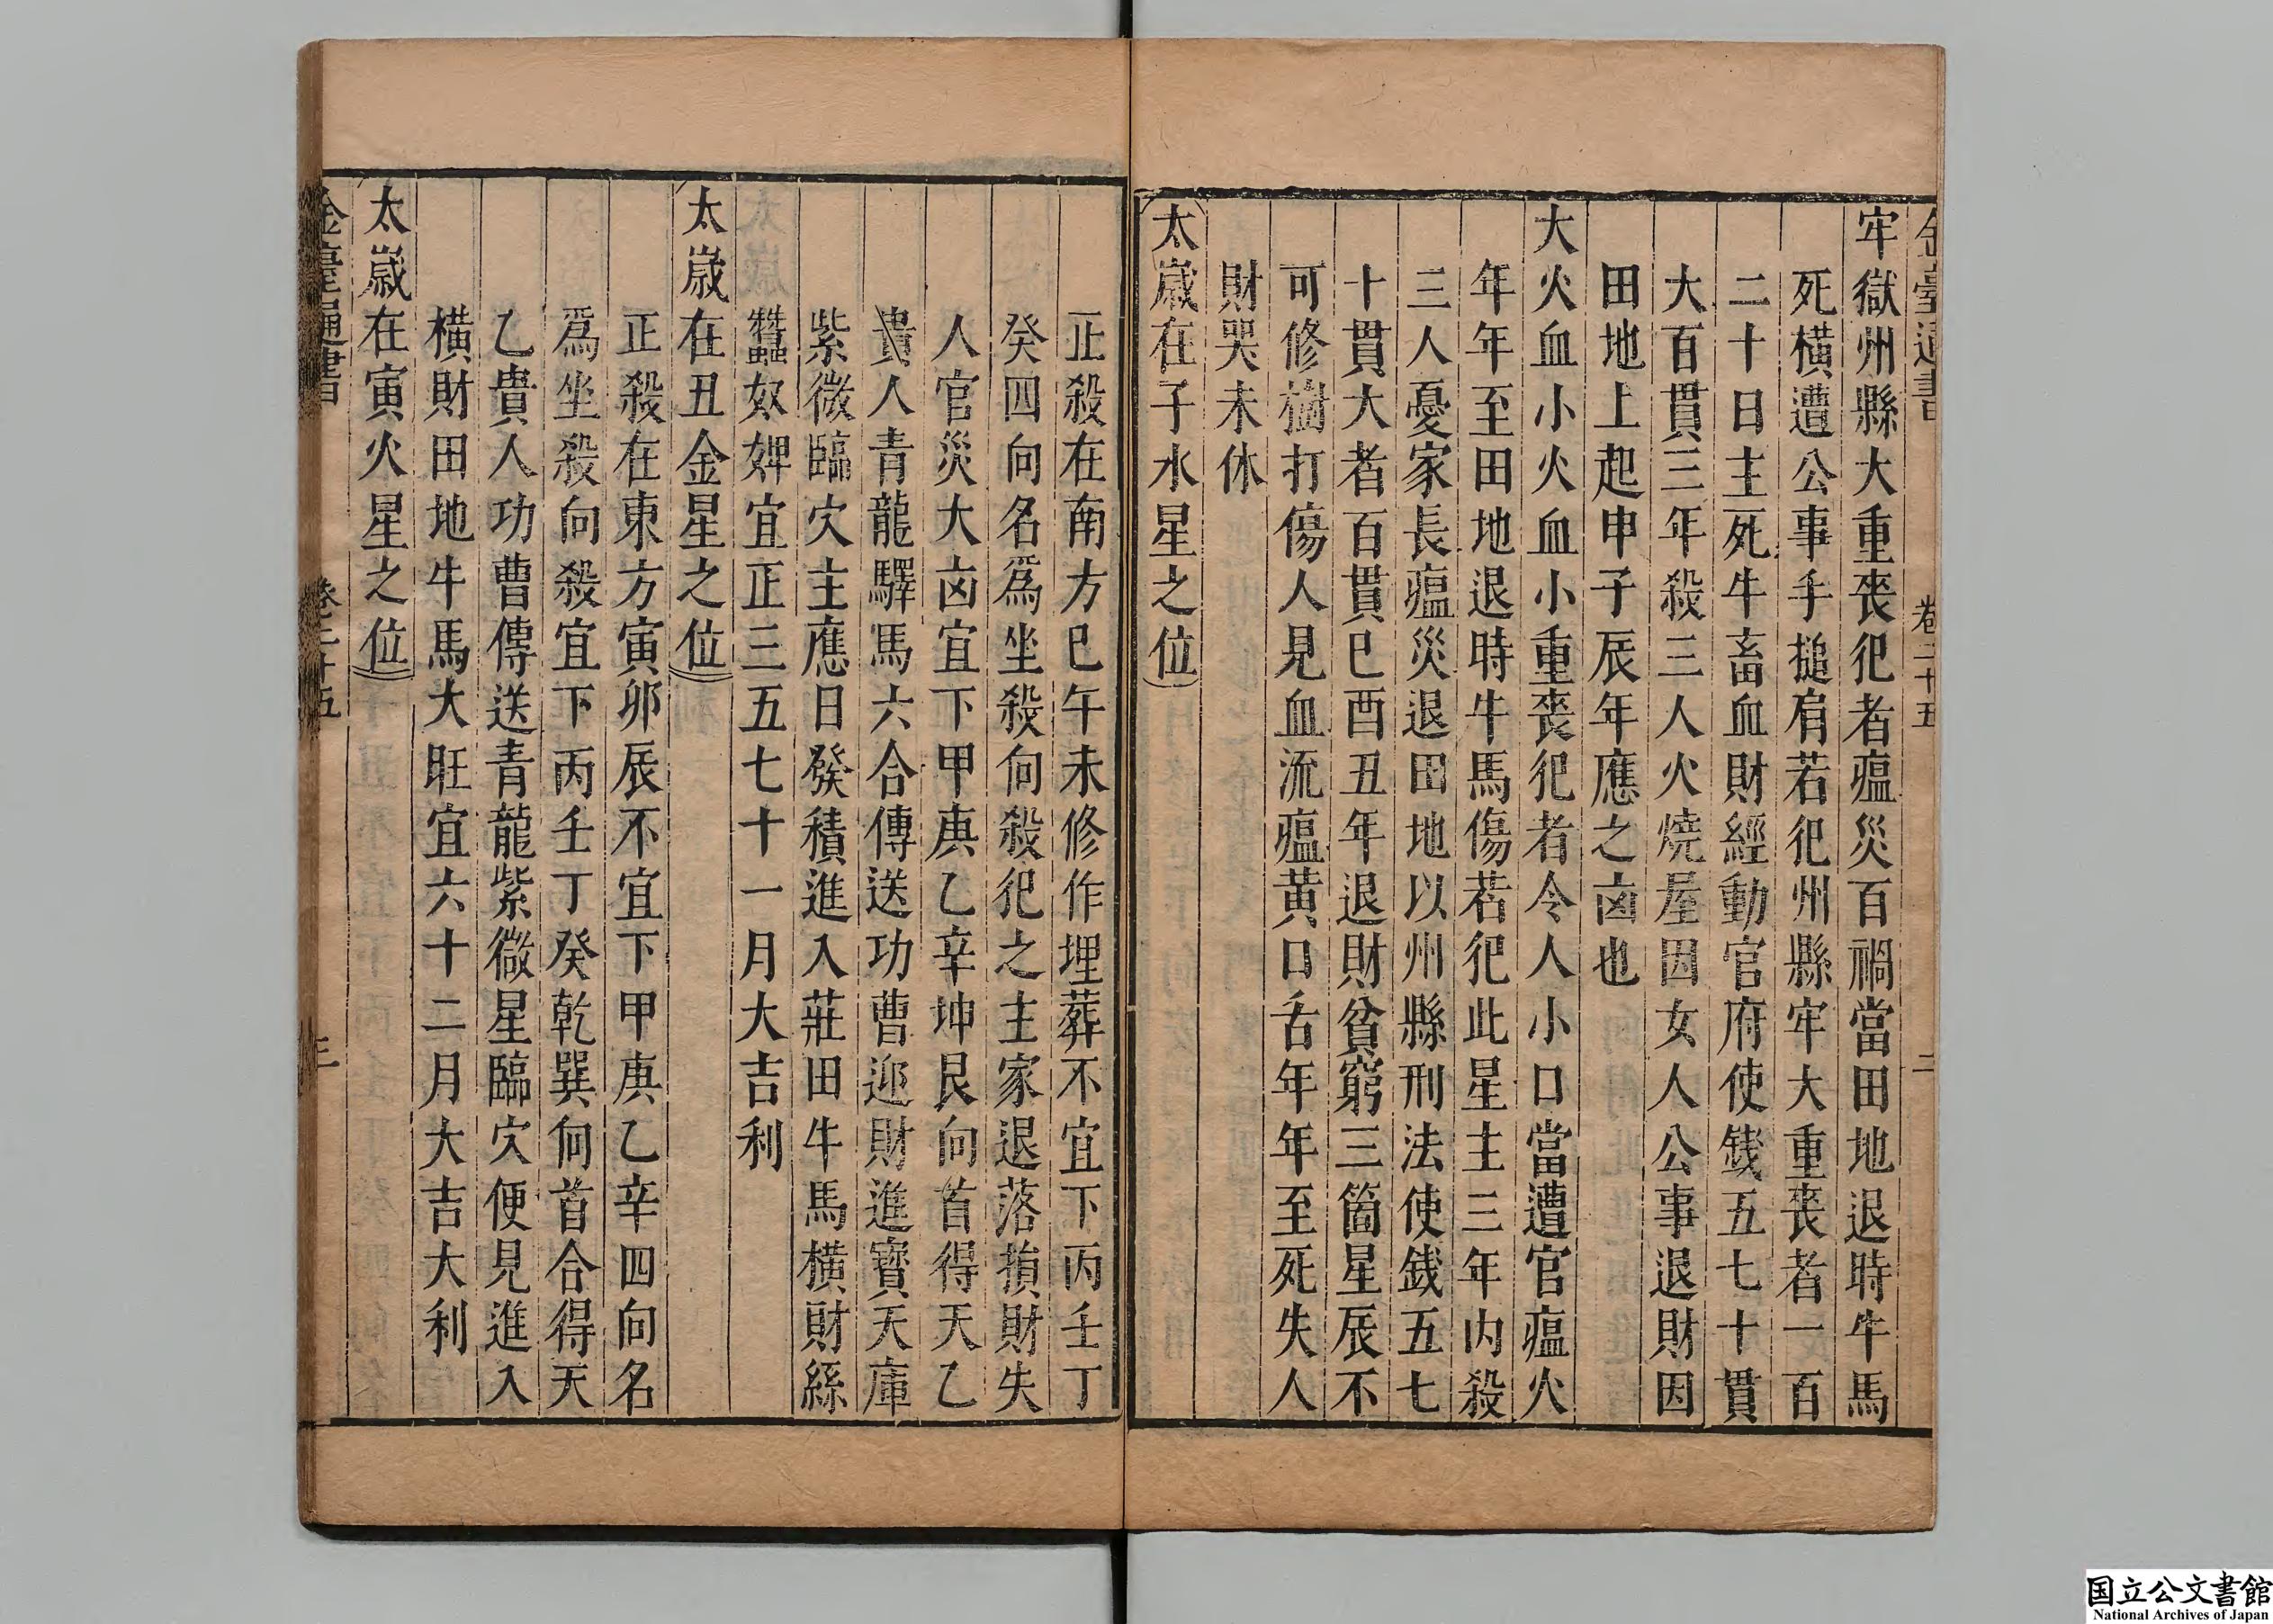 金臺通書 卷二十五 二
牢獄州縣大重喪犯者瘟災百禍當田地退時牛馬
死橫遭公事手搥肩若犯州縣牢大重喪者一百
二十日主死牛畜血財經動官府使錢五七十貫
大百貫三年殺三人火燒屋因女人公事退財因
田地上起申子辰年應之凶也
大火血小火血小重喪犯者令人小口當遭官瘟火
年年至田地退時牛馬傷若犯此星主三年內殺
三人憂家長瘟災退田地以州縣刑法使錢五七
十貫大者百貫巳酉丑年退財貧窮三箇星辰不
可修樹打傷人見血流瘟黃口舌年年至死失人
財哭未休
太歲在子水星之位
正殺在南方巳午未修作埋葬不宜下丙壬丁
癸四向名爲坐殺向殺犯之主家退落損財失
人官災大凶宜下甲庚乙辛坤艮向首得天乙
貴人青龍驛馬六合傳送功曹迎財進寶天庫
紫微臨穴主應日發積進入莊田牛馬橫財絲
蠶奴婢宜正三五七十一月大吉利
太歲在丑金星之位
正殺在東方寅卯辰不宜下甲庚乙辛四向名
爲坐殺向殺宜下丙壬丁癸乾巽向首合得天
乙貴人功曹傳送青龍紫微星臨穴便見進入
橫財田地牛馬大旺宜六十二月大吉大利
太歲在寅火星之位
金臺通書 卷二十五 三
国立公文書館
National Archives of Japan